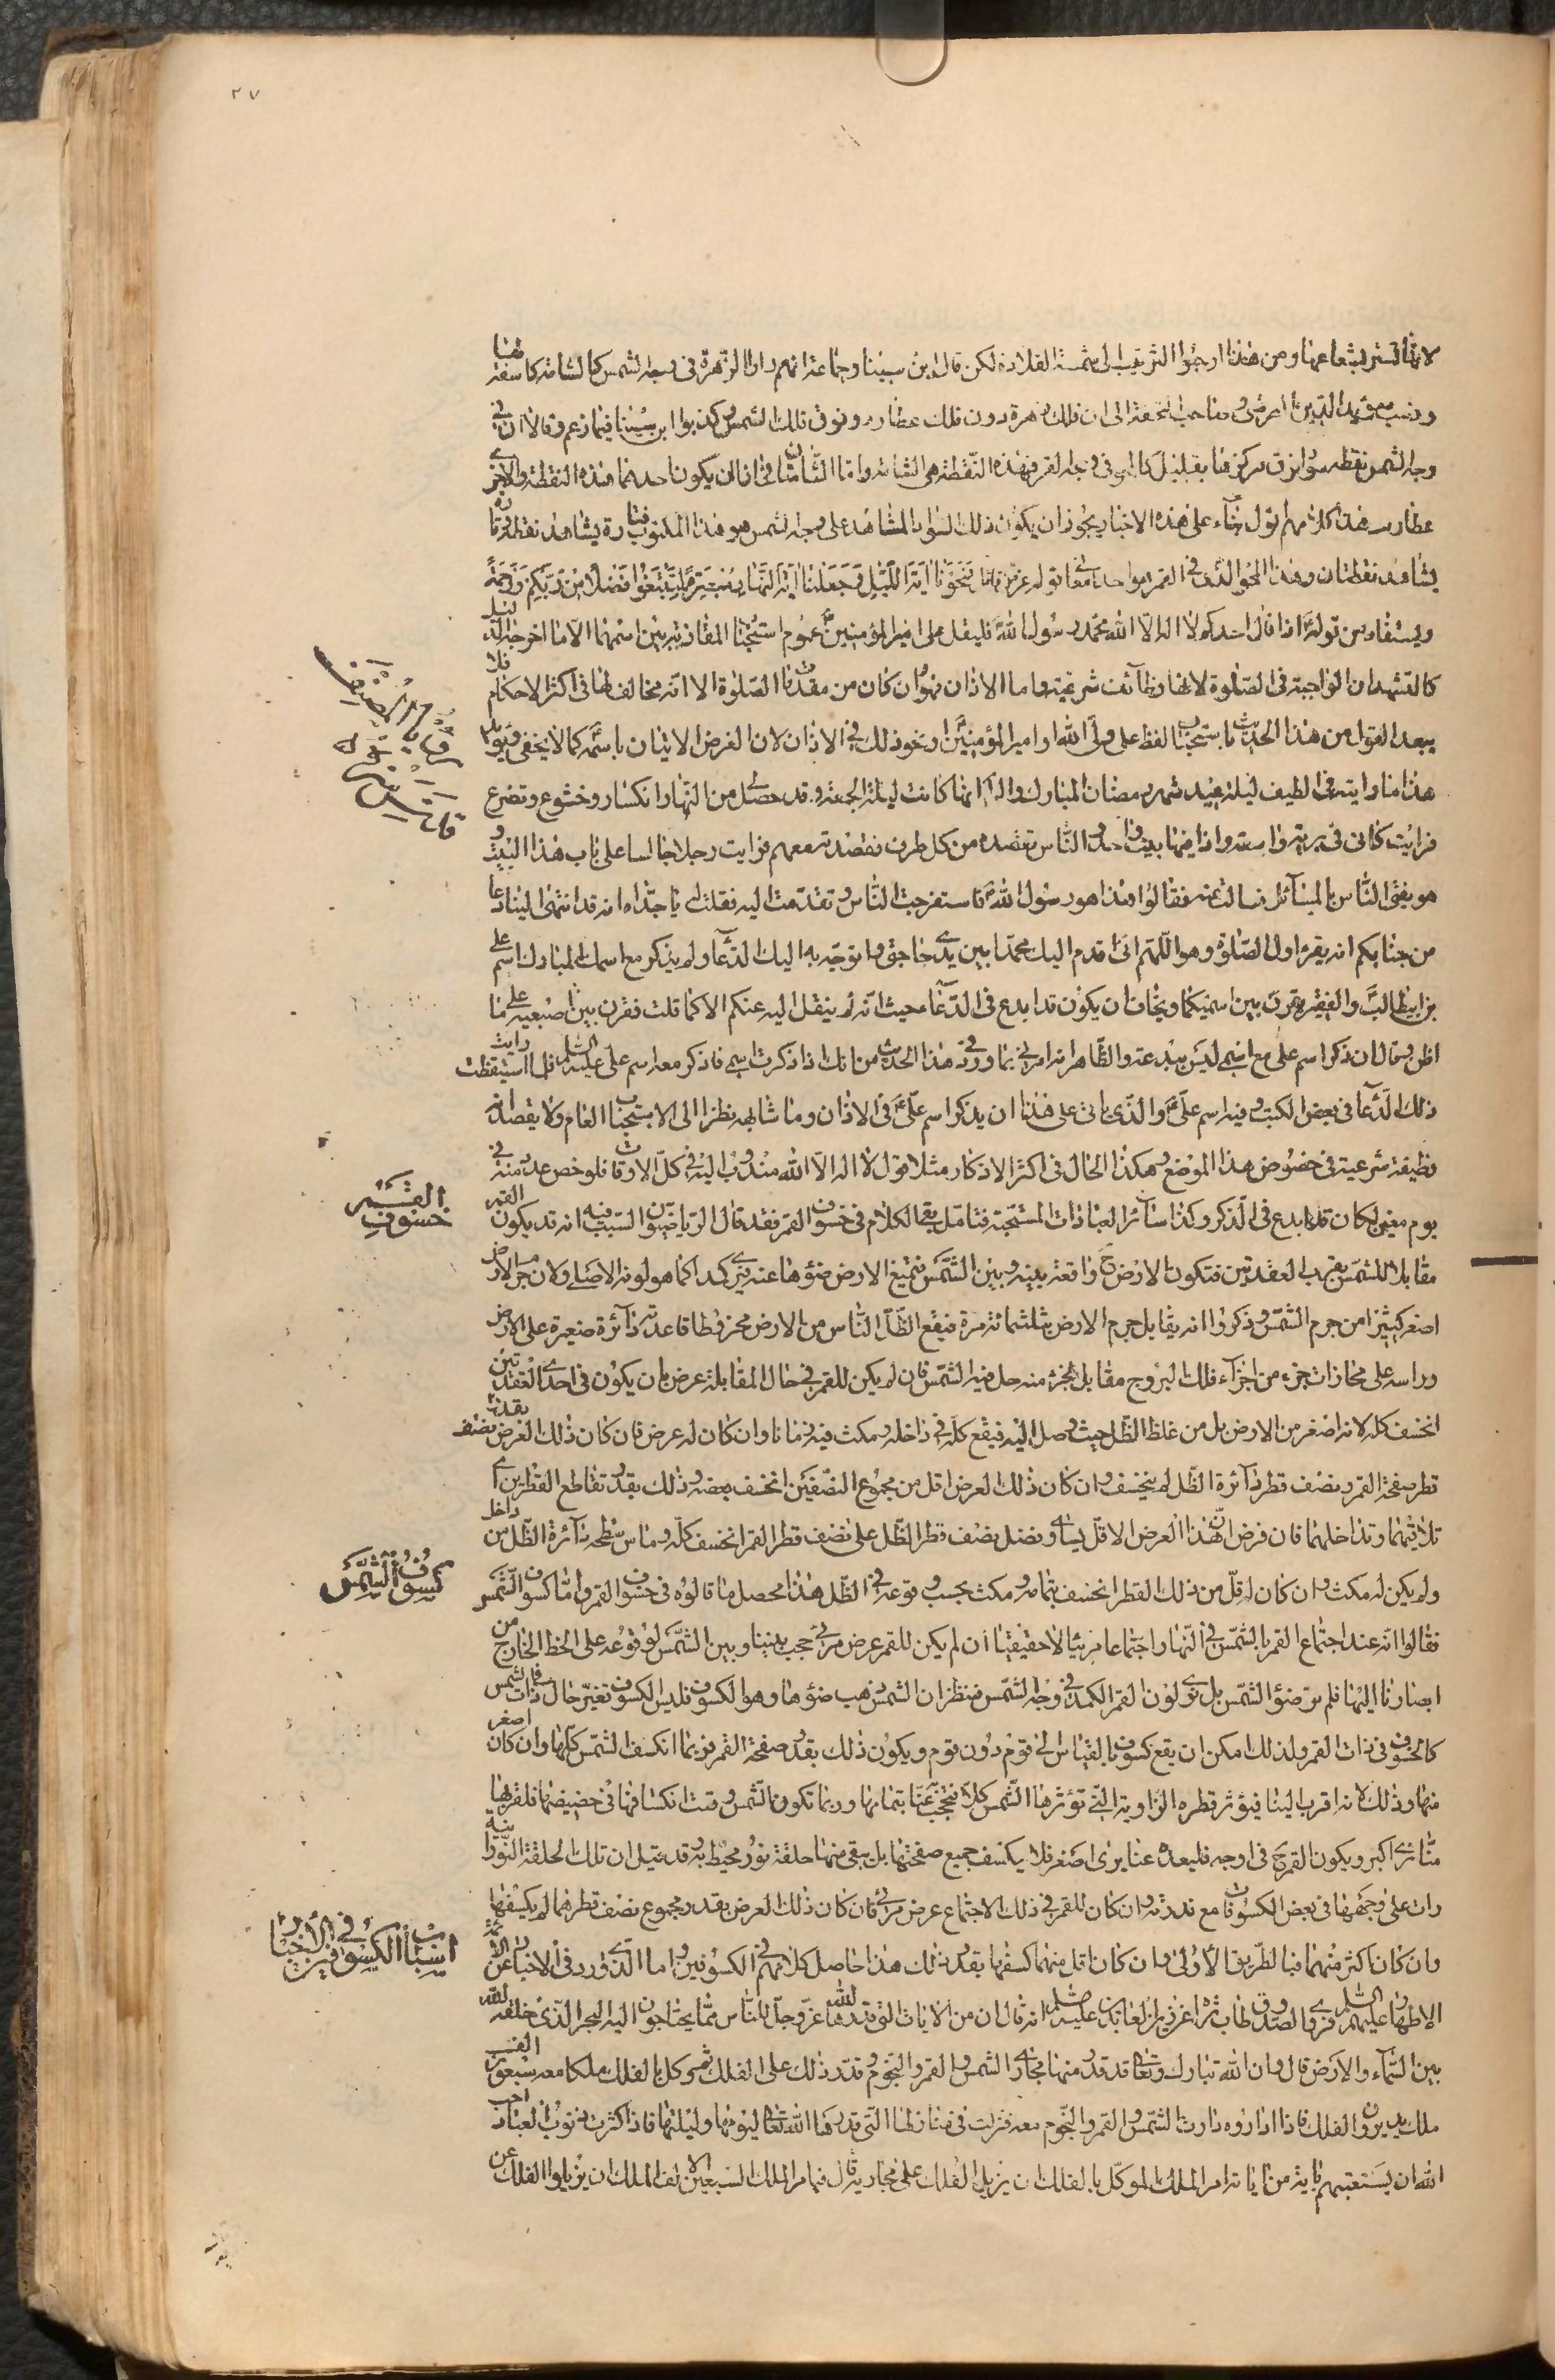 ٢٧
لانها تستر بشعاعها ومن هذا ارجعوا الترتيب الى شمسة القلادة لكن قال ابن سينا وجماعة انهم راوا الزهرة في وجه الشمس كالشامة كاسفة لها
وذهب مؤيد الدين العرضى وصاحب التحفة الى ان فلك الزهرة دون فلك عطارد وفوق فلك الشمس وكذبوا ابن سينا فيما زعم وقالا ان في
وجه الشمس نقطة سوداء فوق مركزها بقليل كالمحو في وجه القمر فهذه النقطة هى الشامة واما الشامتان فانا ان يكون احدهما هذه النقطة والاخرى
عطارد هذا كلامهم اقول بناء على هذه الاخبار يجوز ان يكون ذلك السواد المشاهد على وجه الشمس هو هذا المكتوب فتارة يشاهد نقطة وتارة
يشاهد نقطتان وهذا المحو الذى في القمر هو احد معانى قوله عز شانه فمحونا اية الليل وجعلنا اية النهار مبصرة لتبتغوا فضلا من ربكم ورحمة
ويستفاد من قوله اذا قال احدكم لا اله الا الله محمد رسول الله فليقل على امير المؤمنين عموم استحباب المقارنة بين اسميهما الا ما اخرجه الدليل
كالتشهدات الواجبة في الصلوة لانها وظائف شرعية واما الاذان فهو وان كان من مقدمات الصلوة الا انه مخالف لها في اكثر الاحكام فلا
يبعد القول من هذا الحديث باستحباب لفظ على ولى الله او امير المؤمنين او نحو ذلك في الاذان لان الغرض الاتيان باسمه كما لا يخفى ويؤيد
هذا ما رايته في الطيف ليلة عيد شهر رمضان المبارك والا انها كانت ليلة الجمعة وقد حصل لى من النهار انكسار وخشوع وتضرع
فرايت كانى في برية واسعة واذا فيها بيت واحد والناس تقصده من كل طرف فقصدته معهم فرايت رجلا جالسا على باب هذا البيت و
هو يفتى الناس بالمسائل فسالت عنه فقالوا هذا هو رسول الله فاستفرجت الناس وتقدمت اليه فقلت يا جداه انه قد انتهى الينا دعاء
من جنابكم انه يقرء اول الصلوة وهو اللهم انى اقدم اليك محمدا بين يدى حاجتى واتوجه به اليك الدعاء ولم يذكر مع اسمك المبارك اسم على
بن ابيطالب والفقير يقرن بين اسميكما ويخاف ان يكون قد ابدع في الدعاء حيث انه لم ينقل اليه عنكم الا كما قلت فقرن بين اصبعيه على ما
اظن وقال ان ذكر اسم على مع اسمى ليس ببدعة والظاهر انه امرنى بما ورد في هذا الحديث من انك اذا ذكرت اسمى فاذكر معه اسم على عليه السلم فلما استيقظت رايت
ذلك الدعاء في بعض الكتب وفيه اسم على والذى ياتى على هذا ان يذكر اسم على في الاذان وما شابهه نظرا الى الاستحباب العام ولا يقصد انه
وظيفة شرعية في خصوص هذا الموضع وهكذا الحال في اكثر الاذكار مثلا قول لا اله الا الله مندوب اليه في كل الاوقات فلو خص عدد منه في
يوم معين لكان قد ابدع في الذكر وكذا سائر العبادات المستحبة فتامل بقى الكلام في خسوف القمر فقد قال الرياضيون السبب فيه انه قد يكون القمر
مقابلا للشمس بقرب العقدتين فتكون الارض ح واقعة بينه وبين الشمس فتمنع الارض ضوءها عنه فيرى كمدا كما هو لونه الاصلى ولان جرم الارض
اصغر كثيرا من جرم الشمس وذكروا انه يقابل جرم الارض بثلثمائة مرة فيقع الظل الناس من الارض مخروطا قاعدته دائرة صغيرة على الارض
وراسه على محاذات جزء من اجزاء فلك البروج مقابل لجزء منه حل فيه الشمس فان لم يكن للقمر في حال المقابلة عرض بان يكون في احدى العقدتين
انخسف كله لانه اصغر من الارض بل من غلظ الظل حيث وصل اليه فيقع كله في داخله ومكث فيه زمانا وان كان له عرض فان كان ذلك العرض بقدر نصف
قطر صفحة القمر ونصف قطر دائرة الظل لم ينخسف وان كان ذلك العرض اقل من مجموع النصفين انخسف بعضه وذلك بقدر تقاطع القطرين اى
تلاقيهما وتداخلهما فان فرض ان هذا العرض الاقل يساوى فضل نصف قطر الظل على نصف قطر القمر انخسف كله وماس سطحه دائرة الظل من داخل
ولم يكن له مكث وان كان اقل من ذلك القطر انخسف بتمامه ومكث بحسب وقوعه في الظل هذا محصل ما قالوه في خسوف القمر واما كسوف الشمس
فقالوا انه عند اجتماع القمر بالشمس في النهار اجتماعا مرئيا لا حقيقيا ان لم يكن للقمر عرض مرئى حجب بيننا وبين الشمس لوقوعه على الخط الخارج من
ابصارنا اليها فلم نر ضوء الشمس بل نرى لون القمر الكمد في وجه الشمس فنظن ان الشمس ذهب ضوءها وهو الكسوف فليس الكسوف تغير حال ذات الشمس
كالخسوف في ذات القمر ولذلك امكن ان يقع كسوف بالقياس الى قوم دون قوم ويكون ذلك بقدر صفحة القمر فربما انكسف الشمس كلها وان كان اصغر
منها وذلك لانه اقرب الينا فيوتر قطره الزاوية التى توترها الشمس كلا فتحجب عنا بتمامها وربما تكون الشمس وقت انكسافها في حضيضها فلقربها
منا ترى اكبر ويكون القمر ح في اوجه فلبعده عنا يرى اصغر فلا يكسف جميع صفحتها بل يبقى منها حلقة نور محيط به وقد قيل ان تلك الحلقة النورانية
رات على وجهها في بعض الكسوفات مع ندرته وان كان للقمر في ذلك الاجتماع عرض مرئى فان كان ذلك العرض بقدر مجموع نصف قطرهما لم يكسفها
وان كان اكثر منهما فبا الطريق الاولى وان كان اقل منهما كسفها بقدر ذلك هذا حاصل كلامهم في الكسوفين واما الذى ورد في الاخبار عن الائمة
الاطهار عليهم السلم فروى الصدوق طاب ثراه عن زين العابدين عليه السلم انه قال ان من الايات التى قدرها الله عز وجل للناس مما يحتاجون اليه البحر الذى خلقه الله
بين السماء والارض قال وان الله تبارك وتعالى قد قدر منها مجارى الشمس والقمر والنجوم وقدر ذلك على الفلك ثم وكل بالفلك ملكا معه سبعون الف
ملك يديرون الفلك فاذا اداروه دارت الشمس والقمر والنجوم معه فنزلت في منازلها التى قدرها الله تعالى ليومها وليلتها فاذا كثرت ذنوب العباد احب
الله ان يستعتبهم باية من اياته امر الملك الموكل بالفلك ان يزيل الفلك على مجاريه قال فيامر الملك السبعين الالف الملك ان يزيلوا الفلك عن
خسوف القمر
كسوف الشمس
اسباب الكسوفين في الاخبار